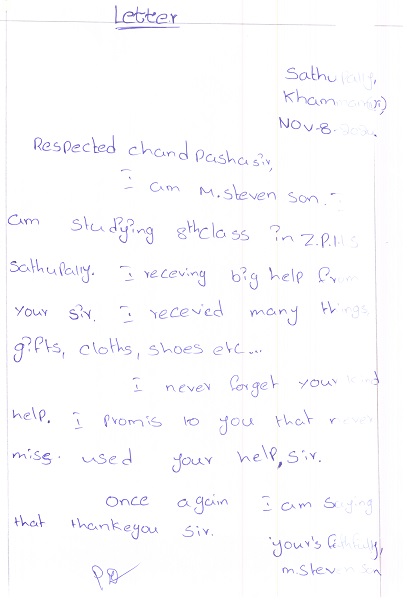 Letter
Sathupally,
Khammam(Dt)
Nov-8.
Respected chand Pasha sir,
I am M. Steven son. I
am studying 8th class in Z.P.H.S
Sathupally. I receving big help from
your sir. I recevied many things
gifts, cloths, shoes etc...
I never forget your kind
help. I promis to you that never
miss. used your help, sir.
Once again I am saying
that thankeyou sir.
your's faithfully,
M. Steven son